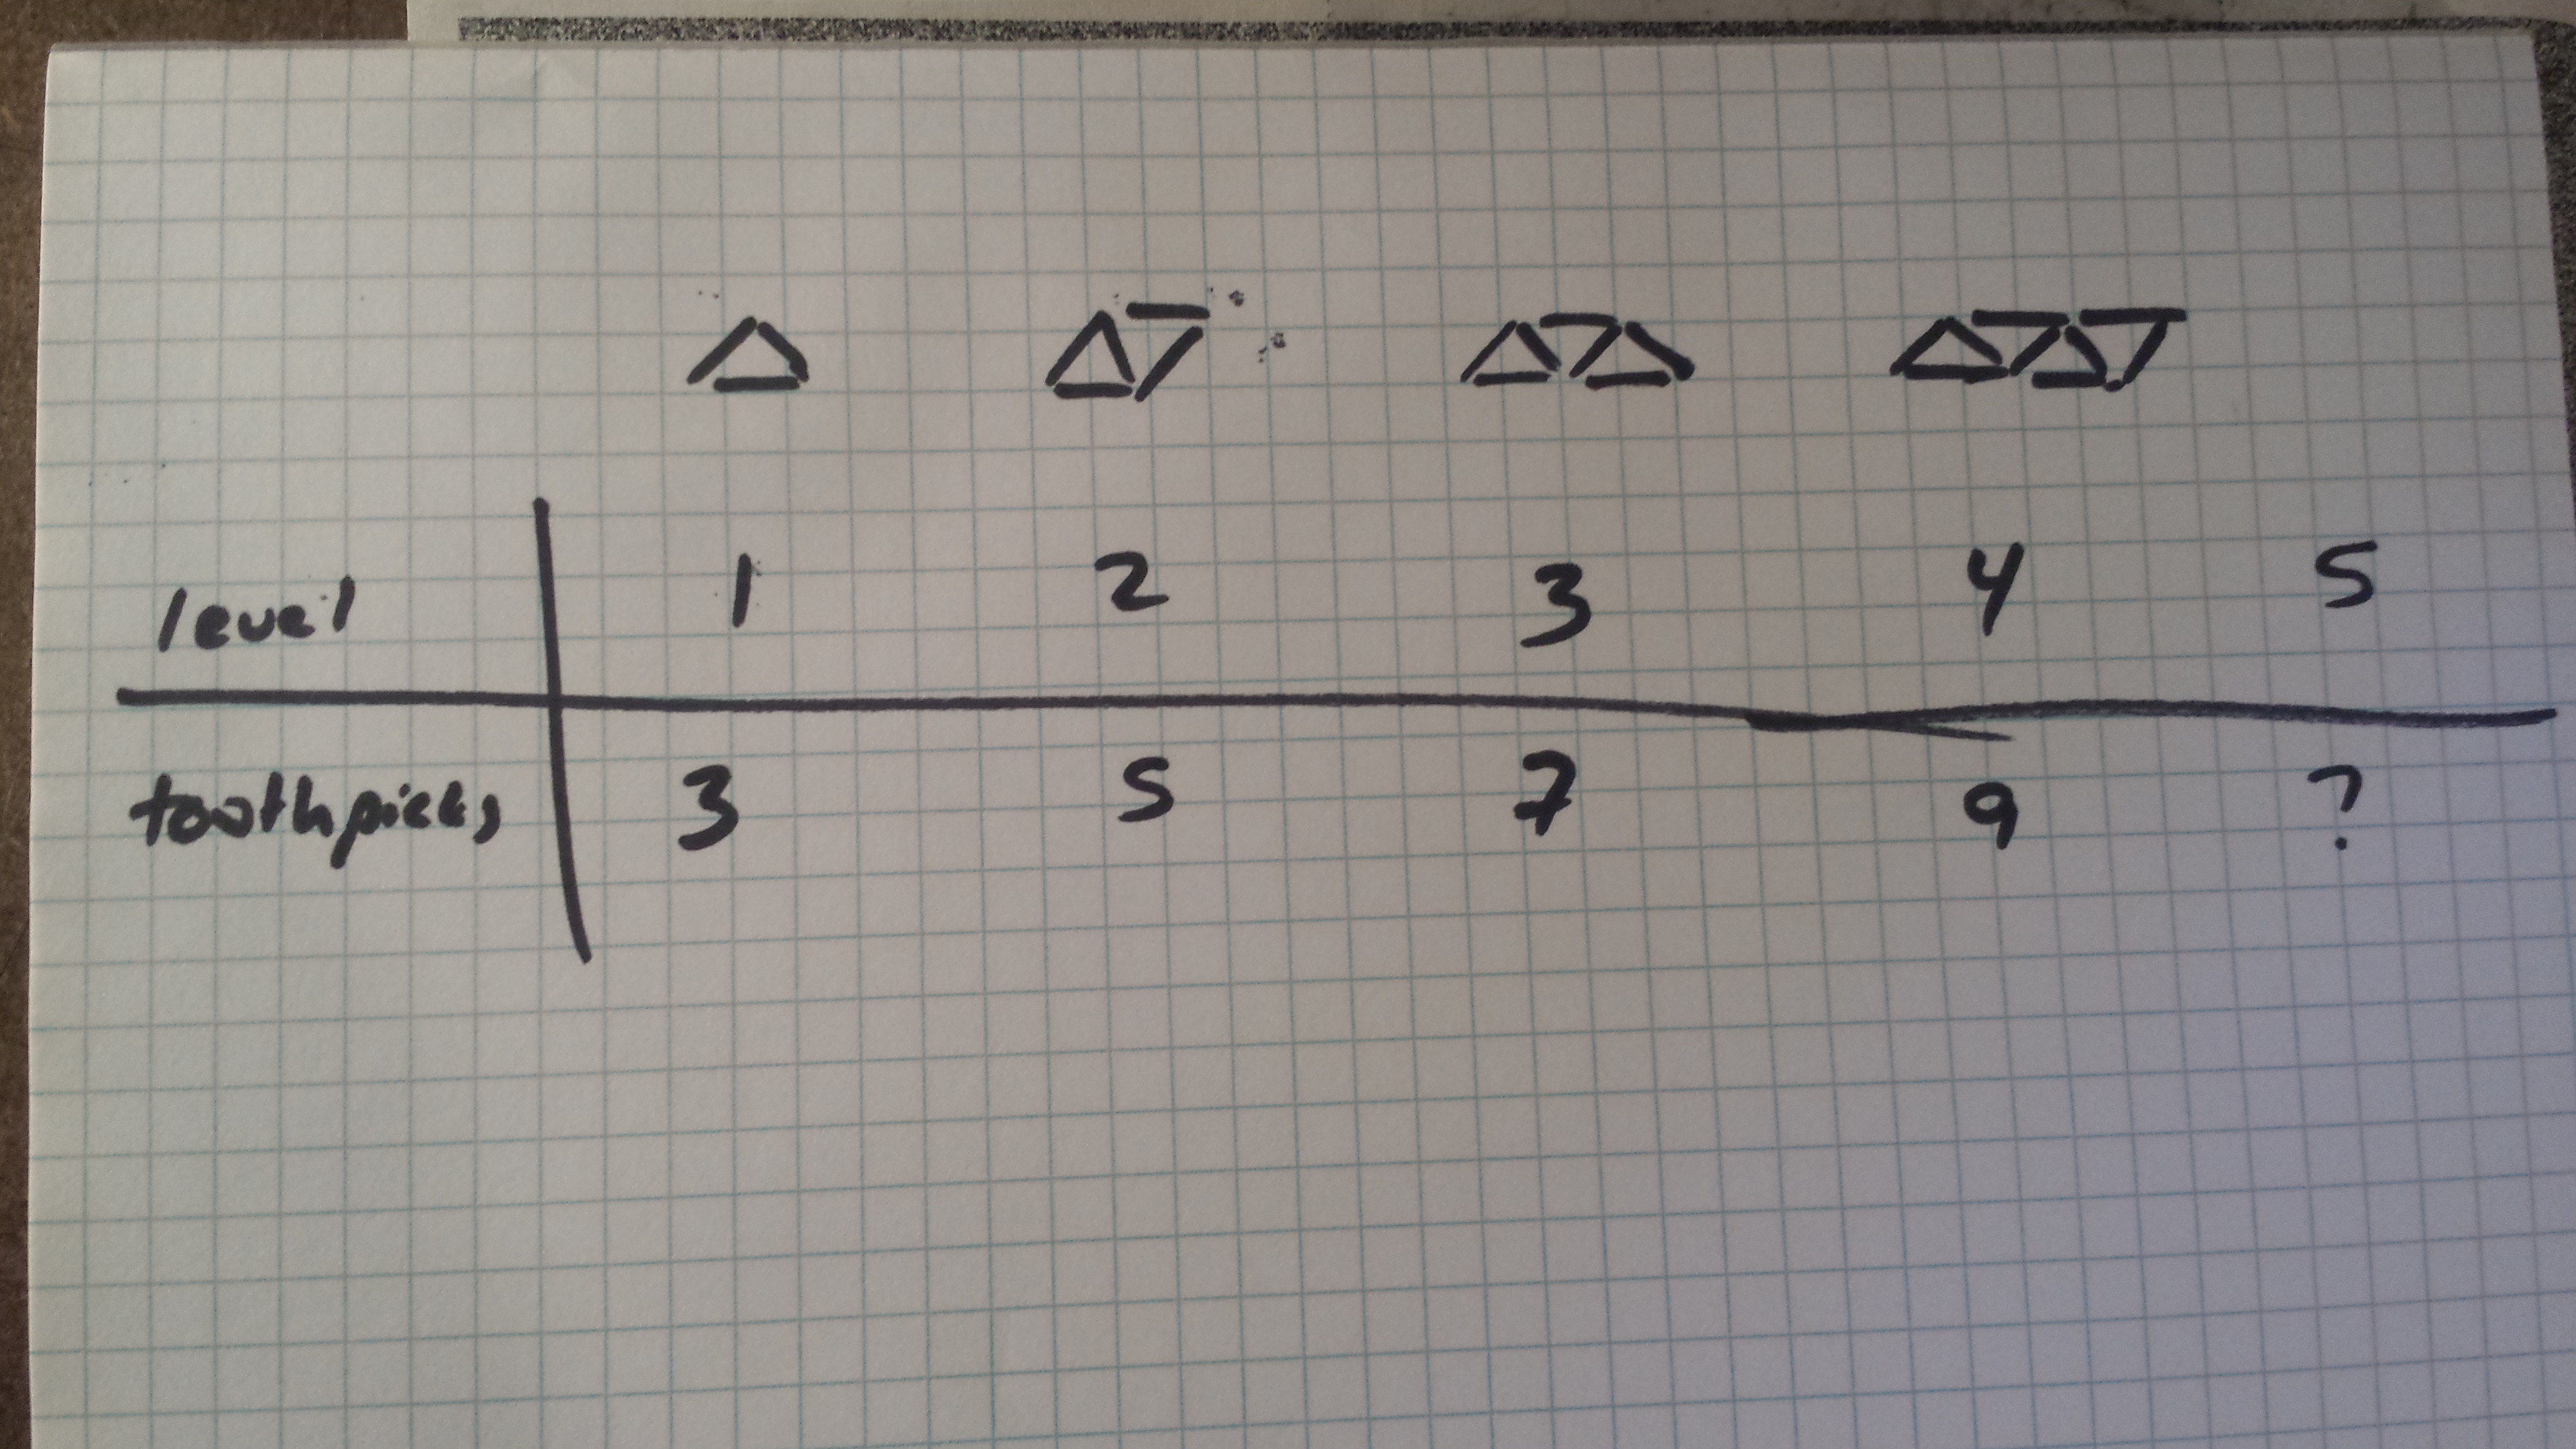 level 1 2 3 4 5
toothpicks 3 5 7 9 ?